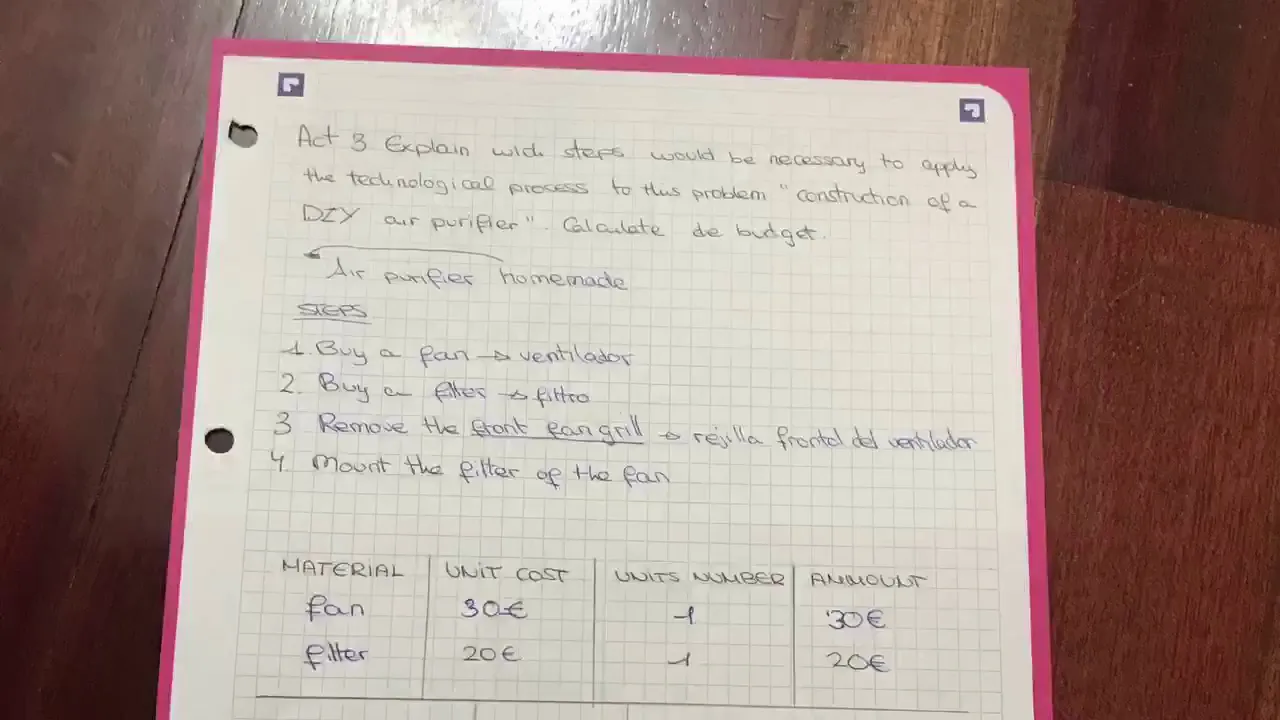 Act 3 Explain wich steps would be necessary to apply
the technological process to this problem "construction of a
DIY air purifier". Calculate de budget.
Air purifier homemade
STEPS
1. Buy a fan → ventilador
2. Buy a filter → filtro
3 Remove the front fan grill → rejilla frontal del ventilador
4. Mount the filter of the fan
MATERIAL UNIT COST UNITS NUMBER AMMOUNT
fan 30€ 1 30€
filter 20€ 1 20€